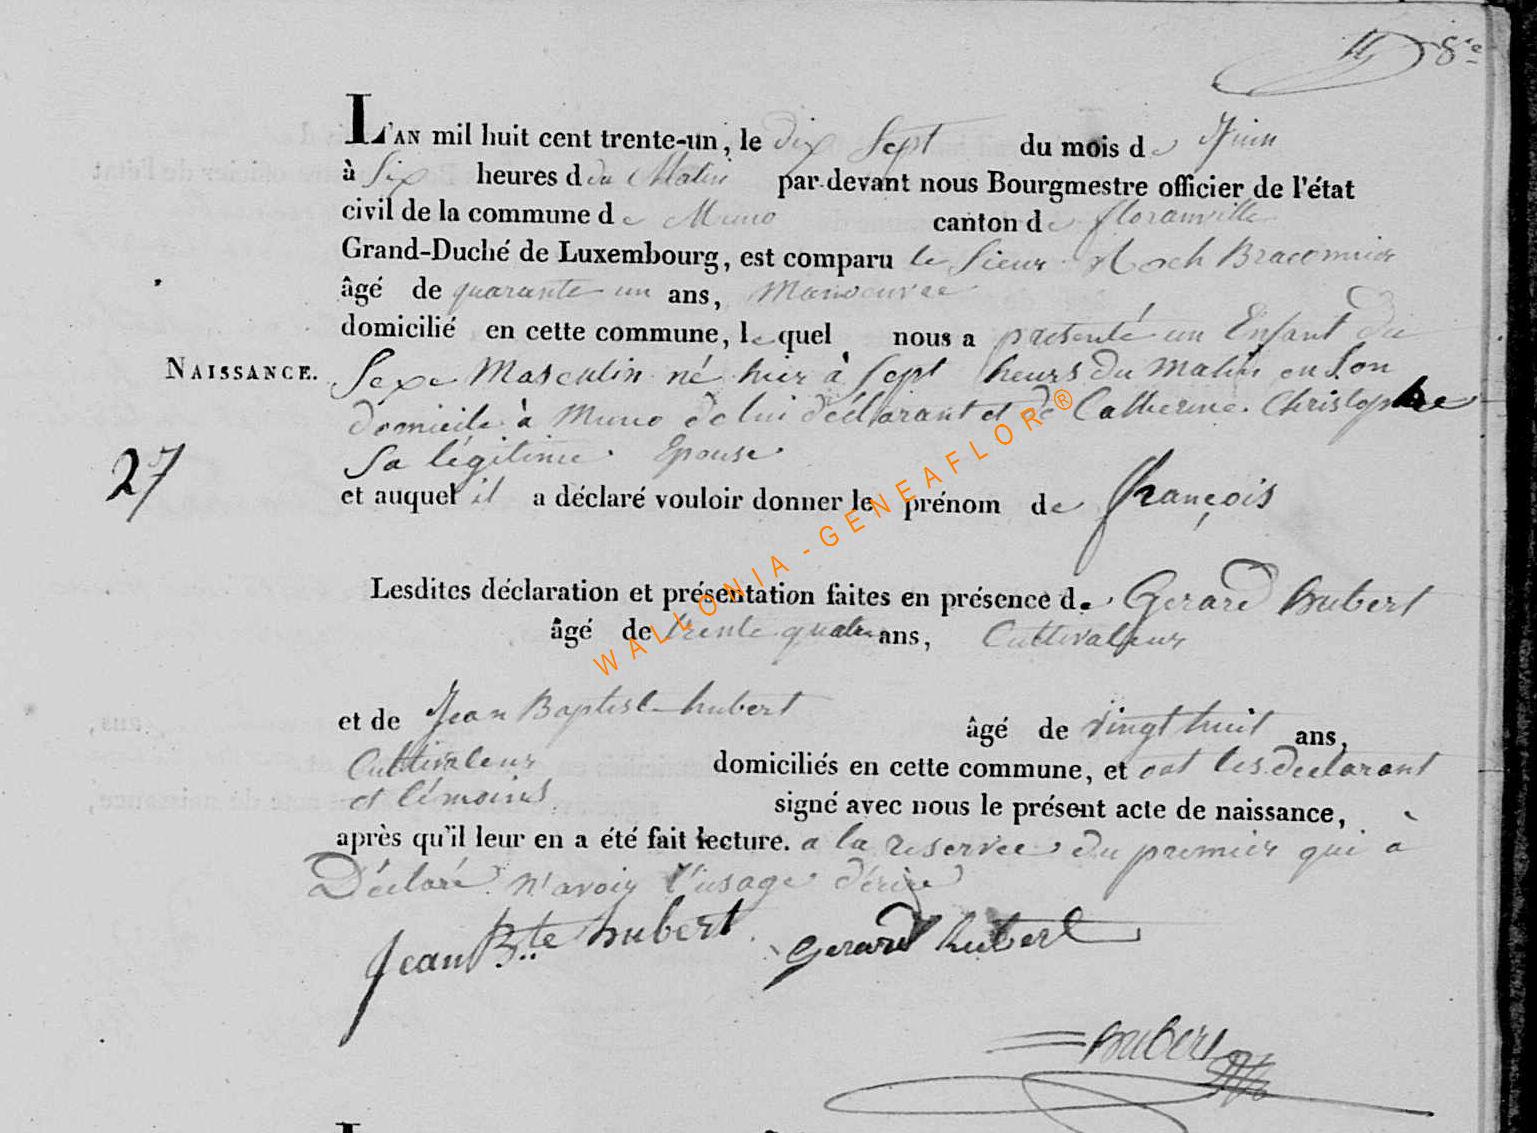 8e
L'AN mil huit cent trente-un, le dix Sept du mois de Juin
à Six heures d du Matin par-devant nous Bourgmestre officier de l'état
civil de la commune de Muno canton de floranville
Grand-Duché de Luxembourg, est comparu le Sieur Roch Braconnier
âgé de quarante un ans, Manoeuvre
domicilié en cette commune, lequel nous a présenté un Enfant du
NAISSANCE. Sexe Masculin né hier à Sept heurs du Matin en Son
domicile à Muno de lui déclarant et de Catherine Christophe
27 Sa légitime Epouse
et auquel il a déclaré vouloir donner le prénom de françois
Lesdites déclaration et présentation faites en présence de Gerard hubert
âgé de trente quatre ans, Cultivateur
et de Jean Baptiste hubert âgé de vingt huit ans,
Cultivateur domiciliés en cette commune, et ont les declarant
et témoins signé avec nous le présent acte de naissance,
après qu'il leur en a été fait lecture. a la reservee du premier qui à
Déclaré n'avoir l'usage d'érire
Jean Bte hubert Gerard hubert
hubert
WALLONIA - GENEAFLOR®